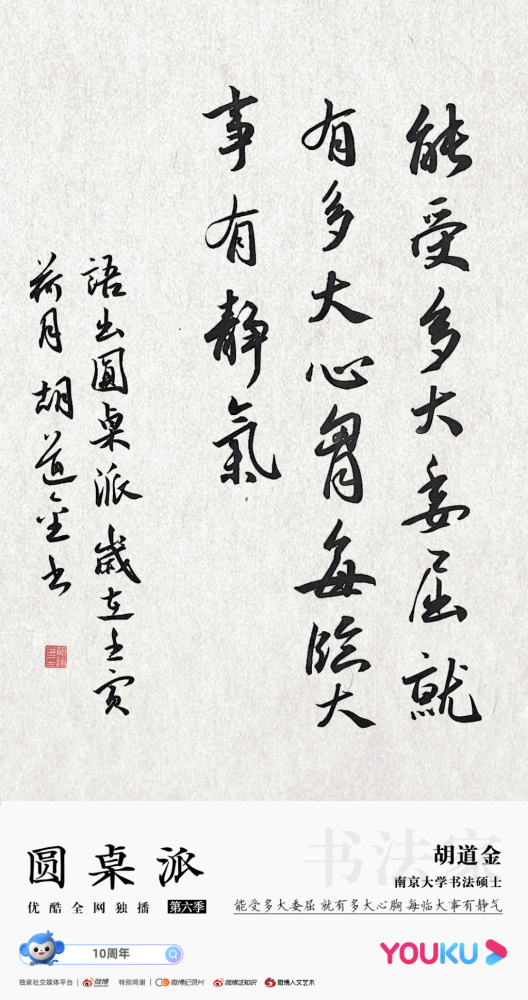 能受多大委屈就
有多大心胷每臨大
事有静氣
語出圓桌派歲在壬寅
荷月胡道金书
书法家
圆桌派
优酷全网独播 第六季
胡道金
南京大学书法硕士
能受多大委屈 就有多大心胸 每临大事有静气
10周年
YOUKU
独家社交媒体平台 | 微博 特别鸣谢 | 微博纪录片 微博泛知识 微博人文艺术